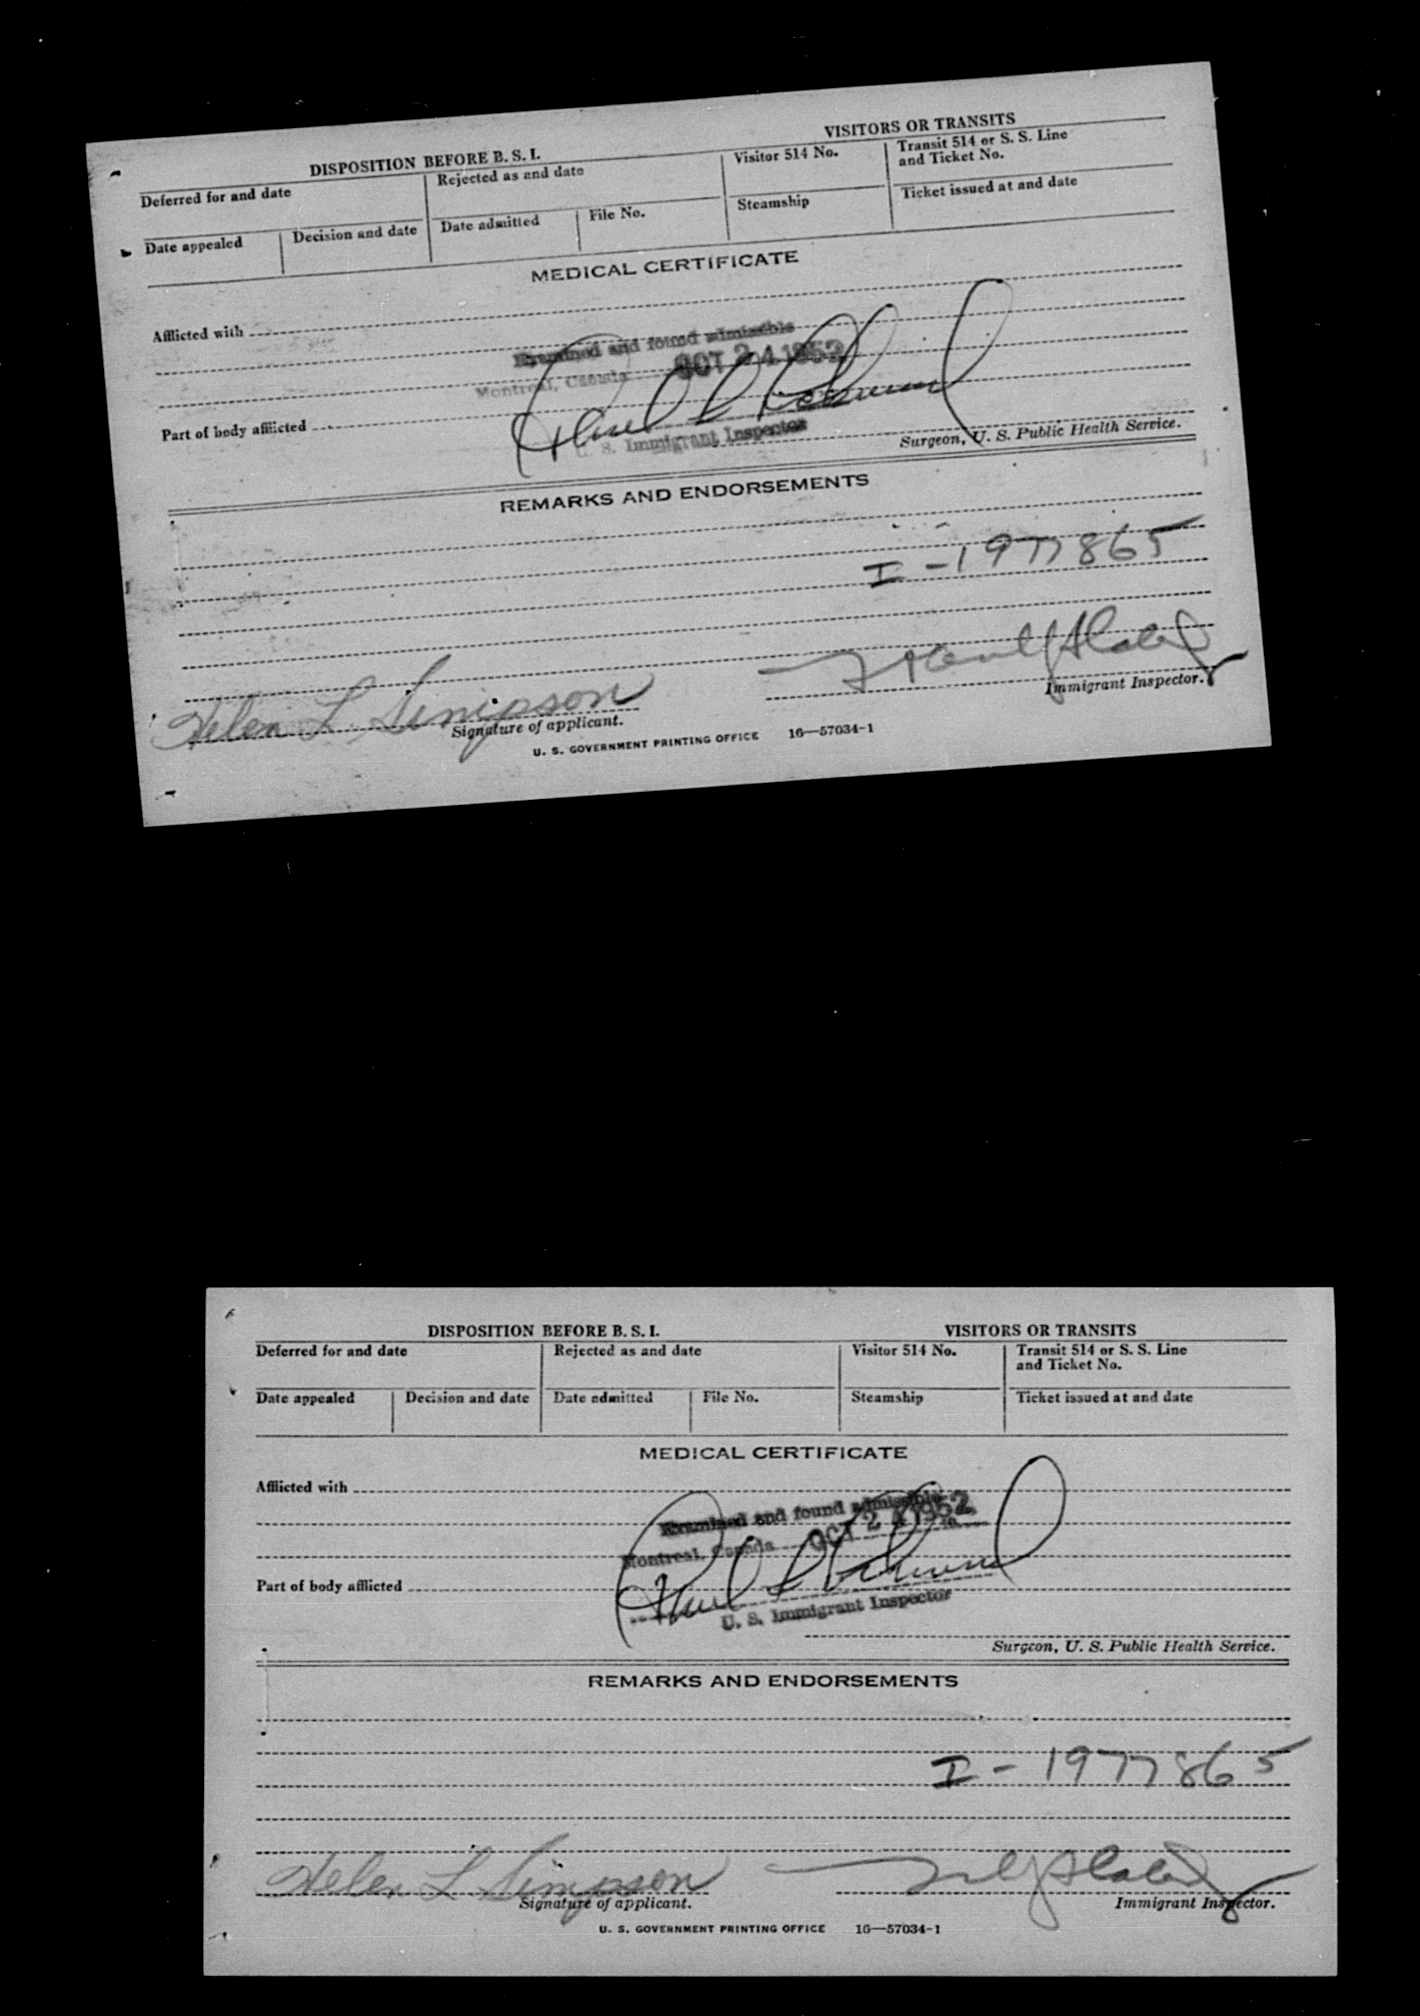 DISPOSITION BEFORE B. S. I.
VISITORS OR TRANSITS
Deferred for and date
Rejected as and date
Visitor 514 No.
Transit 514 or S. S. Line
and Ticket No.
Date appealed
Decision and date
Date admitted
File No.
Steamship
Ticket issued at and date
MEDICAL CERTIFICATE
Afflicted with
Examined and found admissible
Montreal, Canada OCT 24 1952
Part of body afflicted
U. S. Immigrant Inspector
Surgeon, U. S. Public Health Service.
REMARKS AND ENDORSEMENTS
I-1977865
Helen L. Simpson
Signature of applicant.
Immigrant Inspector.
U. S. GOVERNMENT PRINTING OFFICE 16—57034-1
DISPOSITION BEFORE B. S. I.
VISITORS OR TRANSITS
Deferred for and date
Rejected as and date
Visitor 514 No.
Transit 514 or S. S. Line
and Ticket No.
Date appealed
Decision and date
Date admitted
File No.
Steamship
Ticket issued at and date
MEDICAL CERTIFICATE
Afflicted with
Examined and found admissible
Montreal, Canada OCT 24 1952
Part of body afflicted
U. S. Immigrant Inspector
Surgeon, U. S. Public Health Service.
REMARKS AND ENDORSEMENTS
I-1977865
Helen L Simpson
Signature of applicant.
Immigrant Inspector.
U. S. GOVERNMENT PRINTING OFFICE 16—57034-1